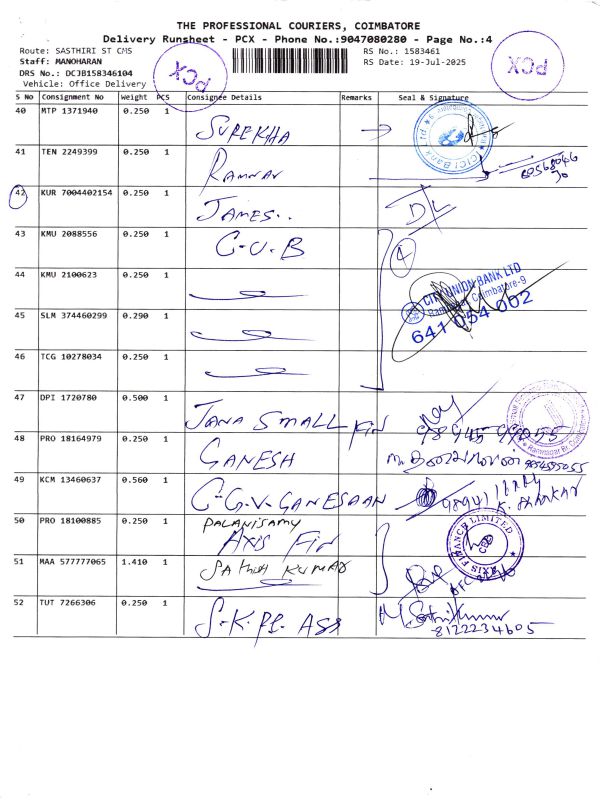 THE PROFESSIONAL COURIERS, COIMBATORE
Delivery Runsheet - PCX - Phone No.:9047080280 - Page No.:4
Route: SASTHIRI ST CMS
RS No.: 1583461
Staff: MANOHARAN
RS Date: 19-Jul-2025
DRS No.: DCJB158346104
Vehicle: Office Delivery
PCX
PCX
S No Consignment No Weight PCS Consignee Details Remarks Seal & Signature
40 MTP 1371940 0.250 1 SUREKHA
ICICI Bank Ltd
41 TEN 2249399 0.250 1 RAMNAR
42 KUR 7004402154 0.250 1 JAMES.. D/L
43 KMU 2088556 0.250 1 C-U-B 4
44 KMU 2100623 0.250 1
CITY UNION BANK LTD
Ramnagar, Coimbatore-9
641 054 002
45 SLM 374460299 0.290 1
46 TCG 10278034 0.250 1
47 DPI 1720780 0.500 1 JANA SMALL FIN
48 PRO 18164979 0.250 1 GANESH
49 KCM 13460637 0.560 1 C-G-V-GANESAAN
50 PRO 18100885 0.250 1 PALANISAMY
AXIS FIN
AXIS FINANCE LIMITED
CBE
51 MAA 577777065 1.410 1 SATHISH KUMAR
52 TUT 7266306 0.250 1
8122234605